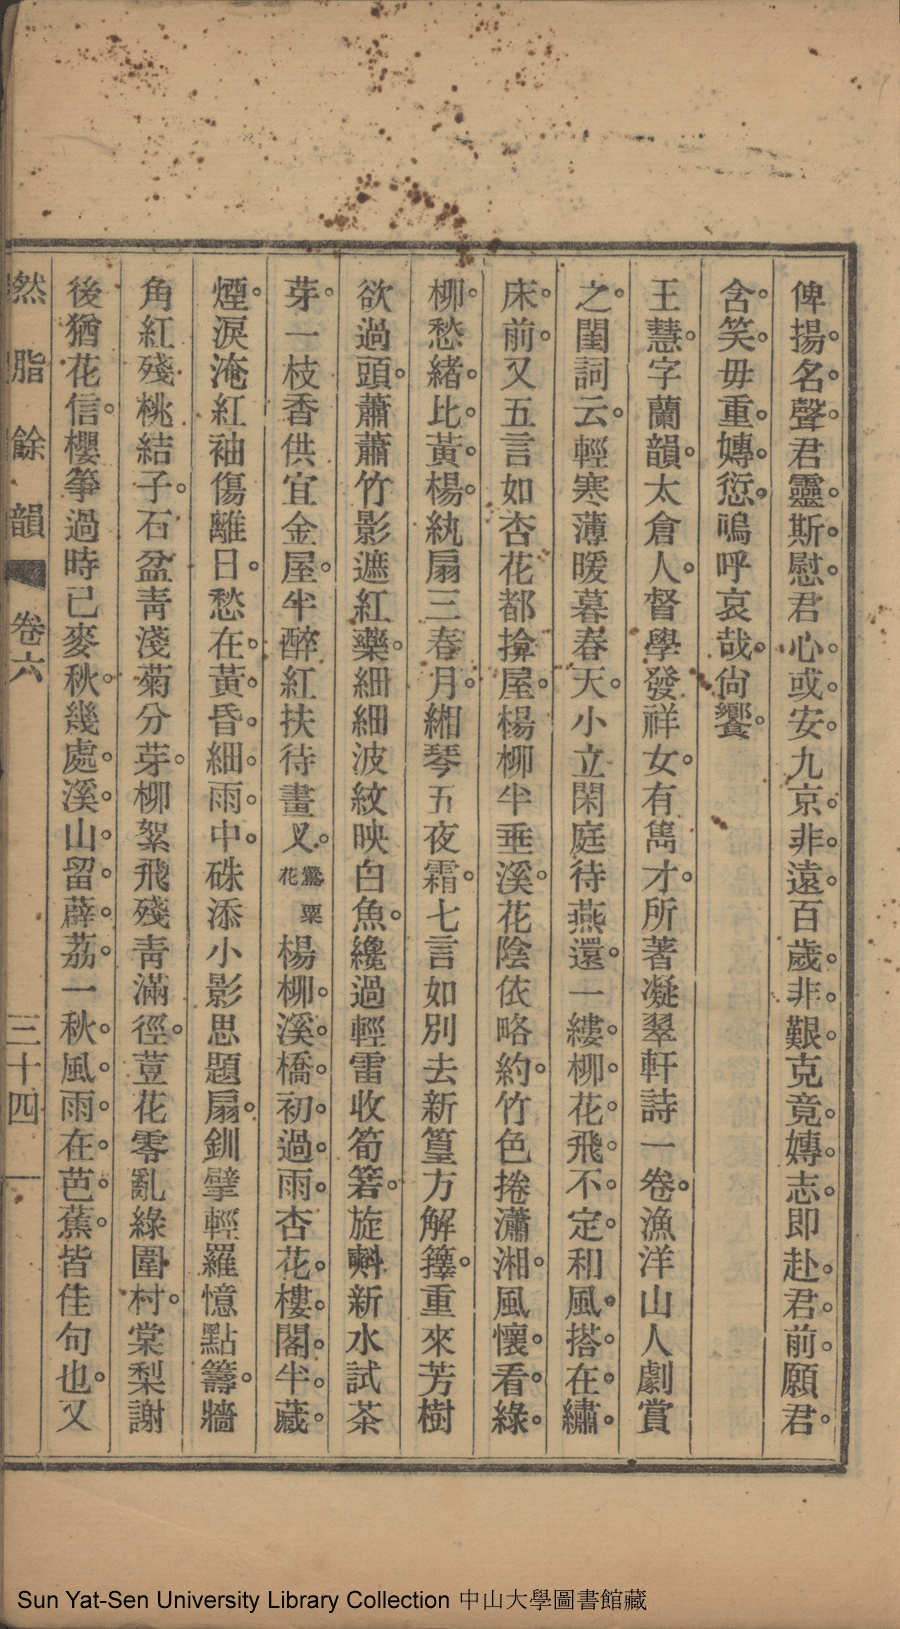 俾揚名聲君靈斯慰君心或安九京非遠百歲非艱克竟嫥志即赴君前願君
含笑毋重嫥愆嗚呼哀哉尙饗
王慧字蘭韻太倉人督學發祥女有雋才所著凝翠軒詩一卷漁洋山人劇賞
之閨詞云輕寒薄暖暮春天小立閑庭待燕還一縷柳花飛不定和風搭在繡
床前又五言如杏花都揜屋楊柳半垂溪花陰依略約竹色捲瀟湘風懷看綠
柳愁緒比黃楊紈扇三春月緗琴五夜霜七言如別去新篁方解籜重來芳樹
欲過頭蕭蕭竹影遮紅藥細細波紋映白魚纔過輕雷收筍箬旋㪺新水試茶
芽一枝香供宜金屋半醉紅扶待畫叉鶯粟花楊柳溪橋初過雨杏花樓閣半藏
煙淚淹紅袖傷離日愁在黃昏細雨中硃添小影思題扇釧擘輕羅憶點籌牆
角紅殘桃結子石盆靑淺菊分芽柳絮飛殘靑滿徑荳花零亂綠圍村棠梨謝
後猶花信櫻筝過時已麥秋幾處溪山留薜荔一秋風雨在芭蕉皆佳句也又
然脂餘韻 卷六 三十四
Sun Yat-Sen University Library Collection 中山大學圖書館藏